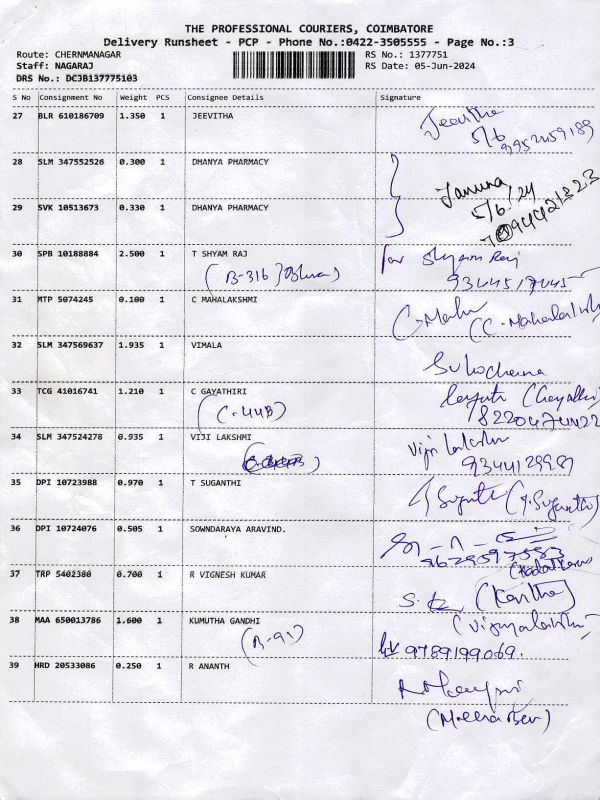 THE PROFESSIONAL COURIERS, COIMBATORE
Delivery Runsheet - PCP - Phone No.:0422-3505555 - Page No.:3
Route: CHERNMANAGAR
Staff: NAGARAJ
DRS No.: DCJB137775103
RS No.: 1377751
RS Date: 05-Jun-2024
S No Consignment No Weight PCS Consignee Details Signature
27 BLR 610186709 1.350 1 JEEVITHA Jeevitha
5/6
28 SLM 347552526 0.300 1 DHANYA PHARMACY
5/6/24
29 SVK 10513673 0.330 1 DHANYA PHARMACY
30 SPB 10188884 2.500 1 T SHYAM RAJ for Shyam Raj
(B-316)
31 MTP 5074245 0.100 1 C MAHALAKSHMI C. Maha
32 SLM 347569637 1.935 1 VIMALA Sulochana
33 TCG 41016741 1.210 1 C GAYATHIRI
(C-44B)
34 SLM 347524278 0.935 1 VIJI LAKSHMI Viji Lakshmi
35 DPI 10723988 0.970 1 T SUGANTHI (T. Suganthi)
36 DPI 10724076 0.505 1 SOWNDARAYA ARAVIND.
37 TRP 5402380 0.700 1 R VIGNESH KUMAR (Kavitha)
38 MAA 650013786 1.600 1 KUMUTHA GANDHI
(B-91) 9789199069.
39 HRD 20533086 0.250 1 R ANANTH